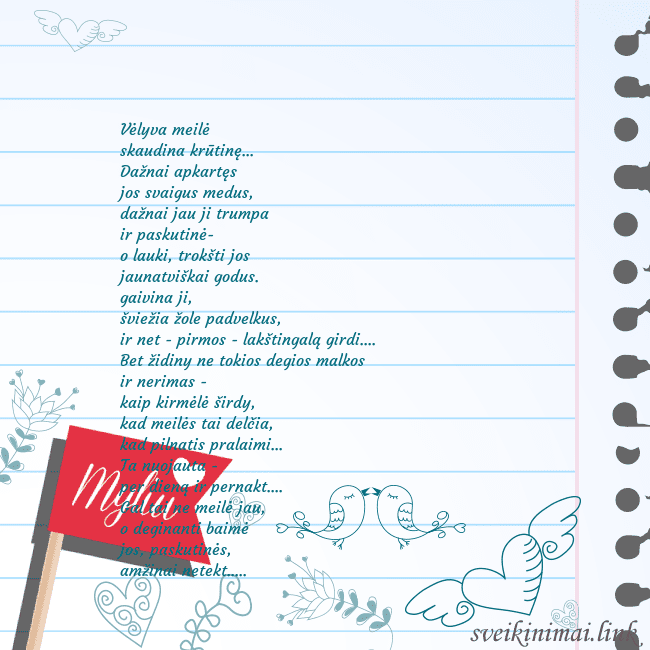 Vėlyva meilė
skaudina krūtinę...
Dažnai apkartęs
jos svaigus medus,
dažnai jau ji trumpa
ir paskutinė-
o lauki, trokšti jos
jaunatviškai godus.
gaivina ji,
šviežia žole padvelkus,
ir net - pirmos - lakštingalą girdi....
Bet židiny ne tokios degios malkos
ir nerimas -
kaip kirmėlė širdy,
kad meilės tai delčia,
kad pilnatis pralaimi...
Ta nuojauta -
per dieną ir pernakt....
Gal tai ne meilė jau,
o deginanti baimė
jos, paskutinės,
amžinai netekt.....
Myliu
sveikinimai.link